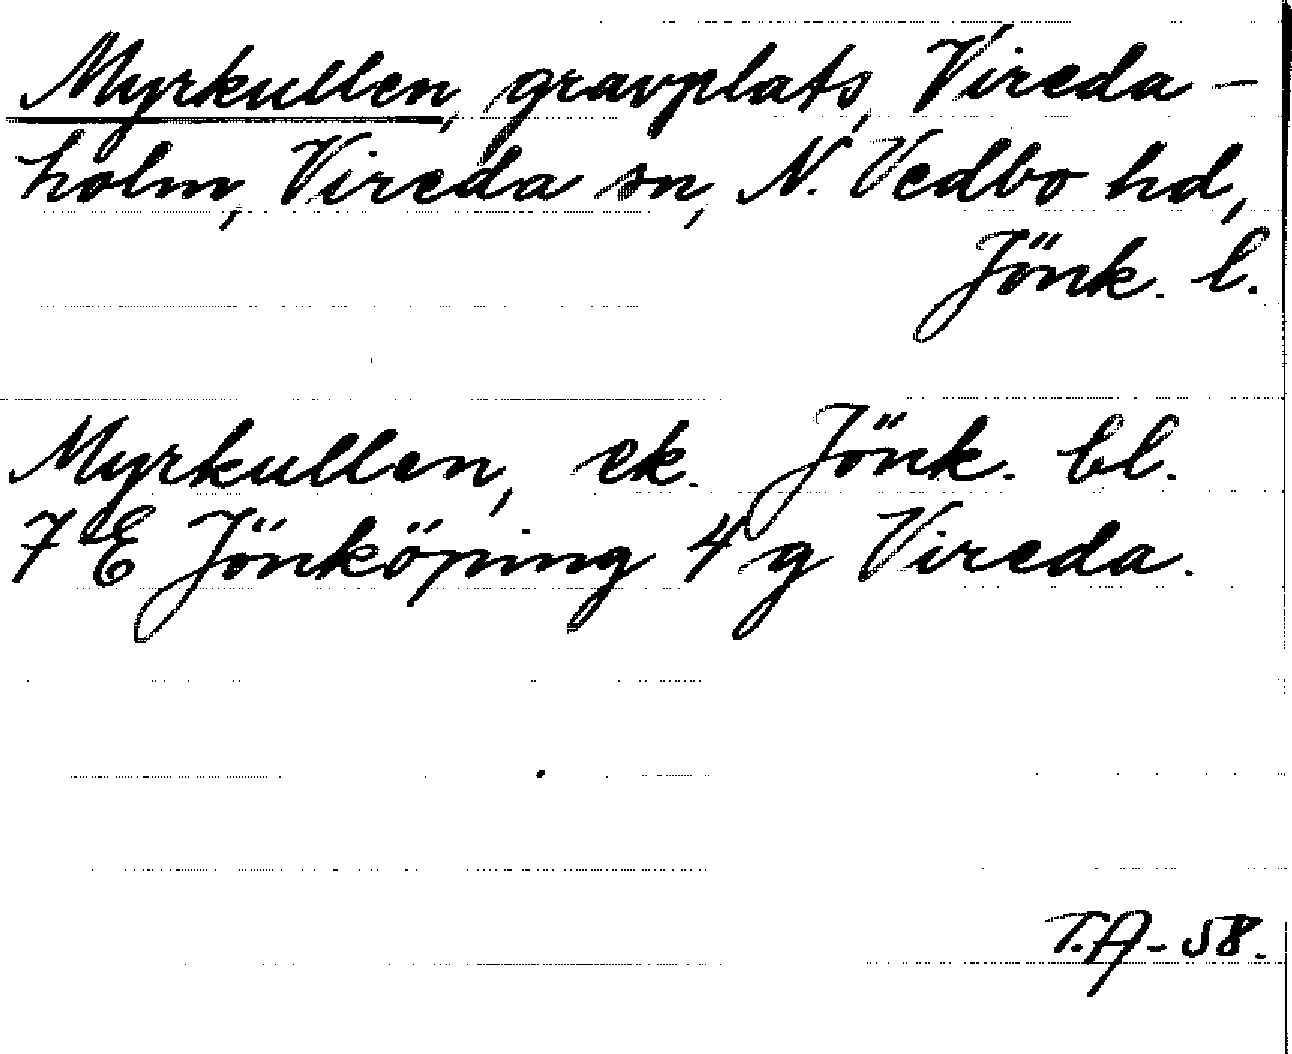 Myrkullen, gravplats, Vireda-
holm, Vireda sn, N. Vedbo hd,
Jönk. l.
Myrkullen, ek. Jönk. bl.
7 E Jönköping 4 g Vireda.
T.A-58.